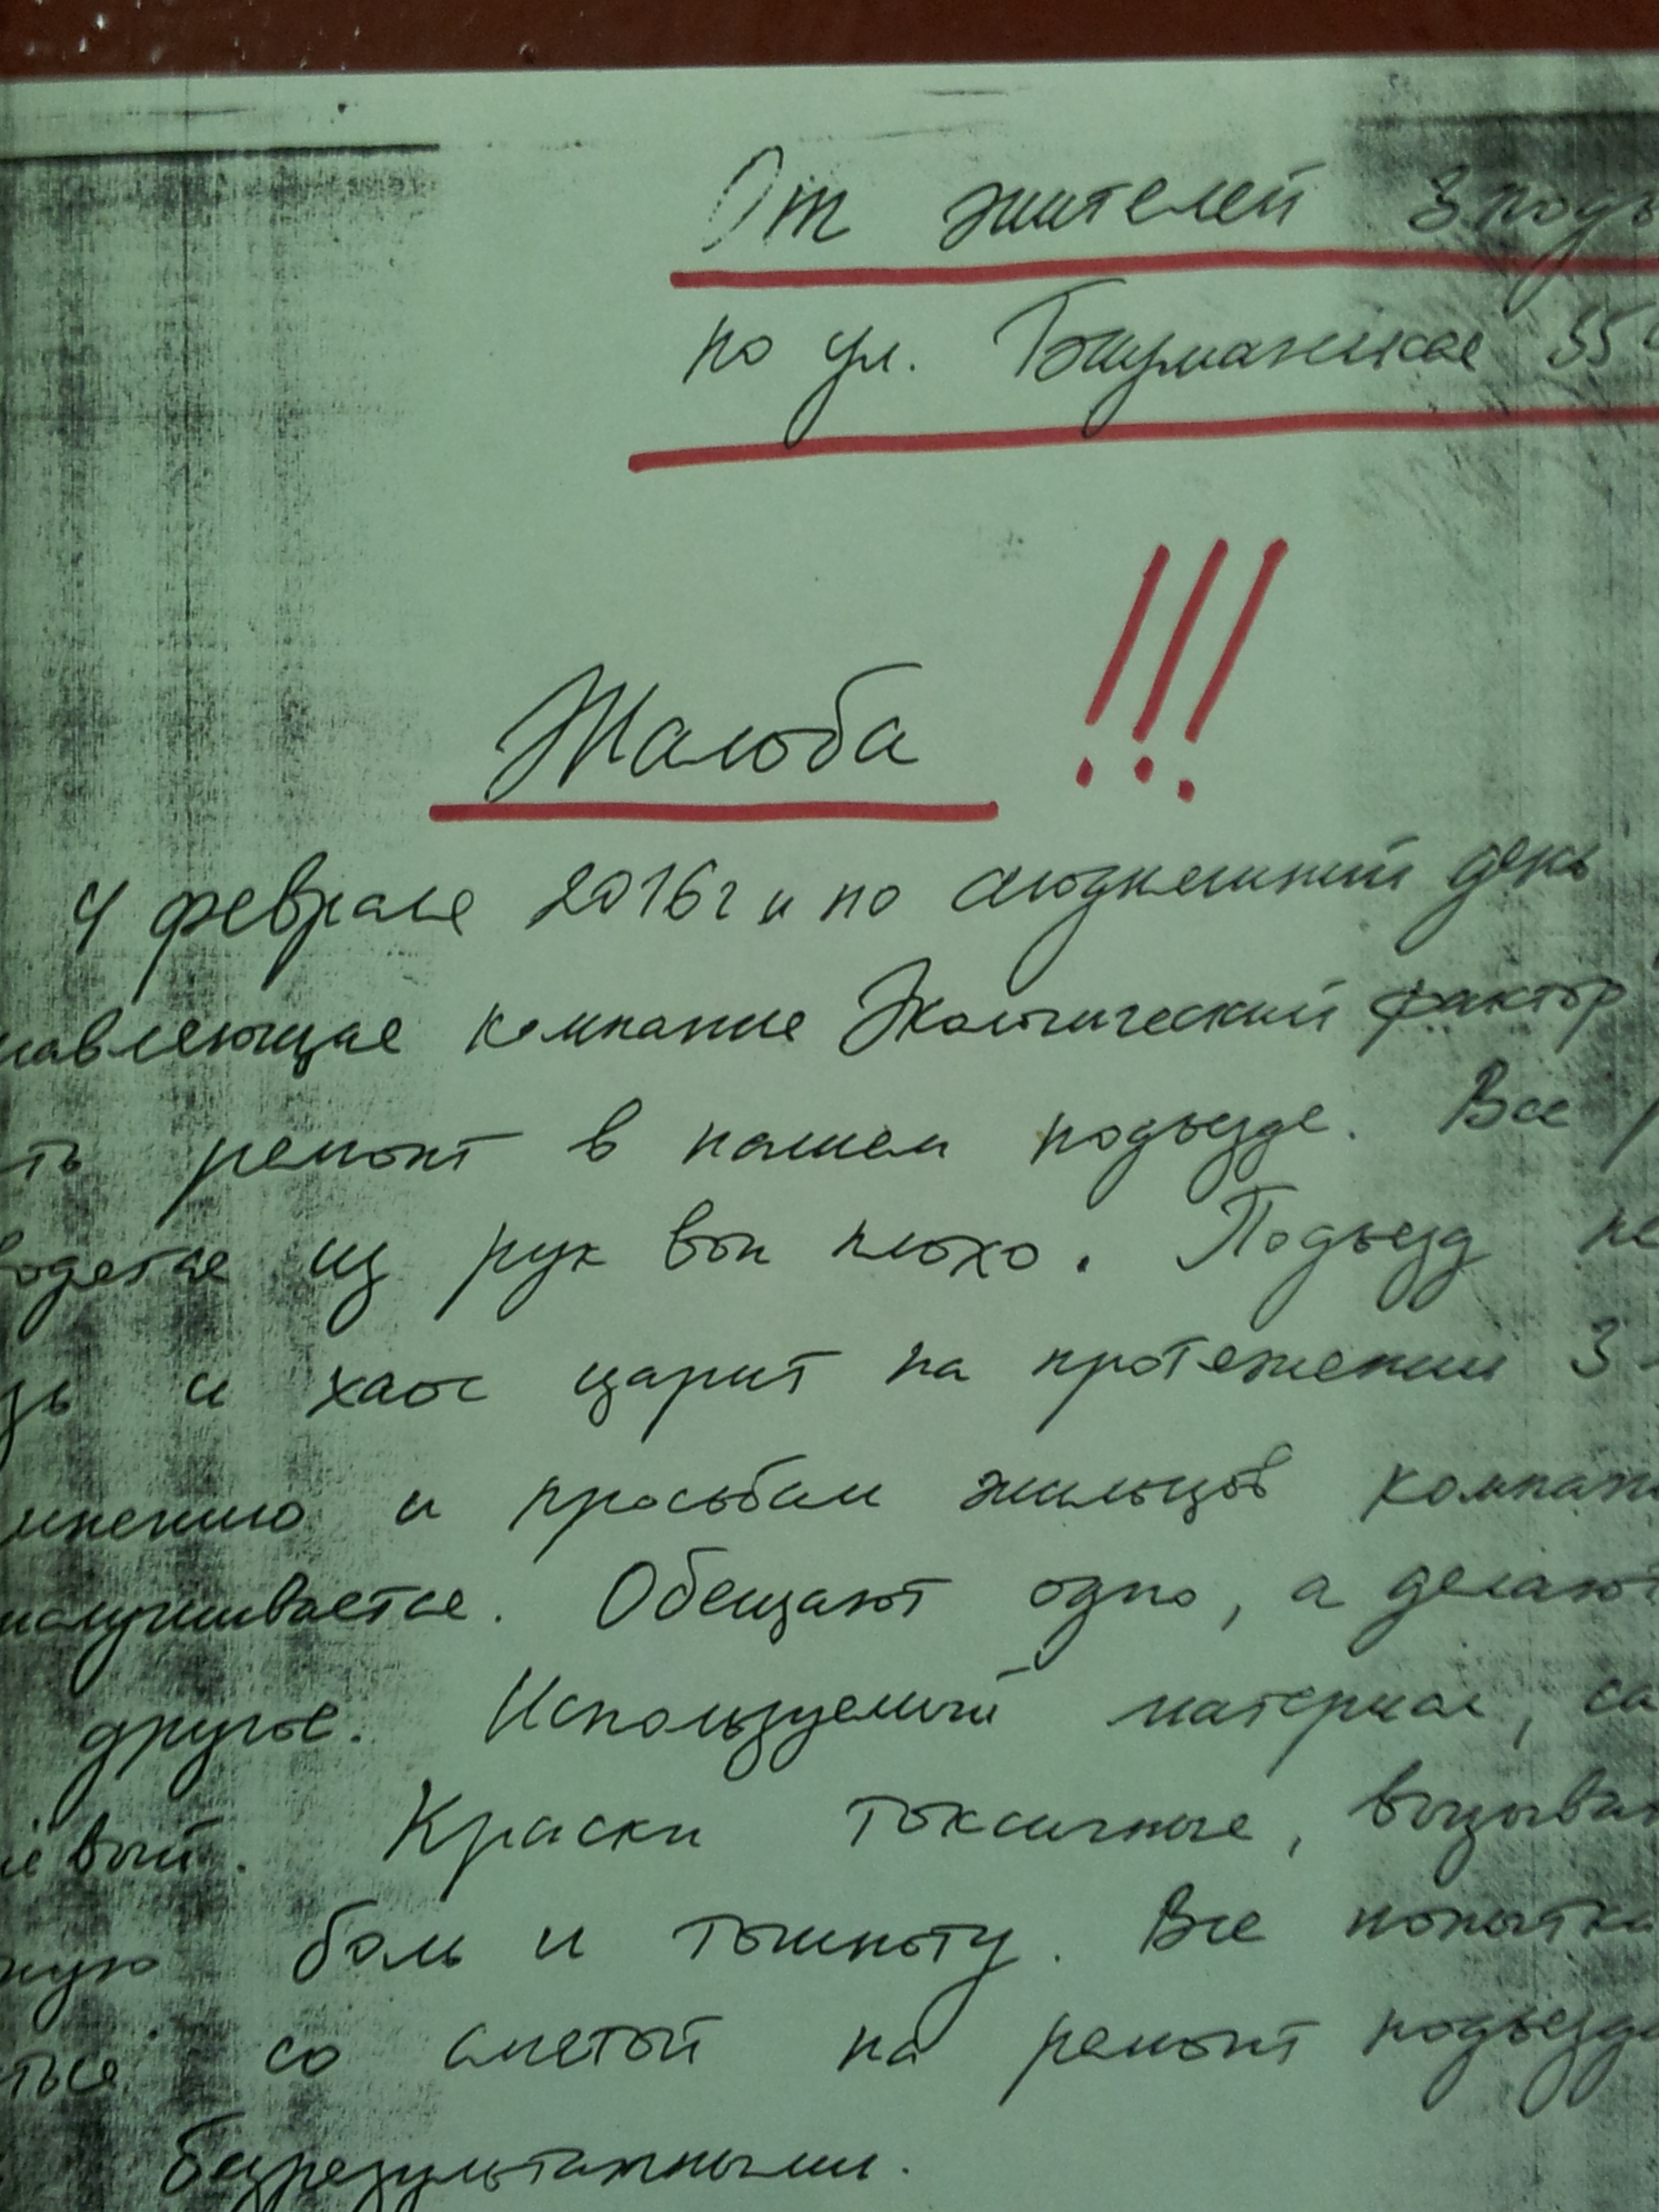 От жителей 3 подъ
по ул. Бауманская 55
Жалоба !!!
4 февраля 2016г и по сегодняшний день
авляющая компания Экологический фактор"
ть ремонт в нашем подъезде. Все
одится из рук вон плохо. Подъезд не
зь и хаос царит на протяжении 3-
мнению и просьбам жильцов компани
ислушивается. Обещают одно, а делают
другое. Используемый материал, са
ёвый. Краски токсичные, вызываю
ную боль и тошноту. Все попытки
ться со сметой на ремонт подъезда
безрезультатными.